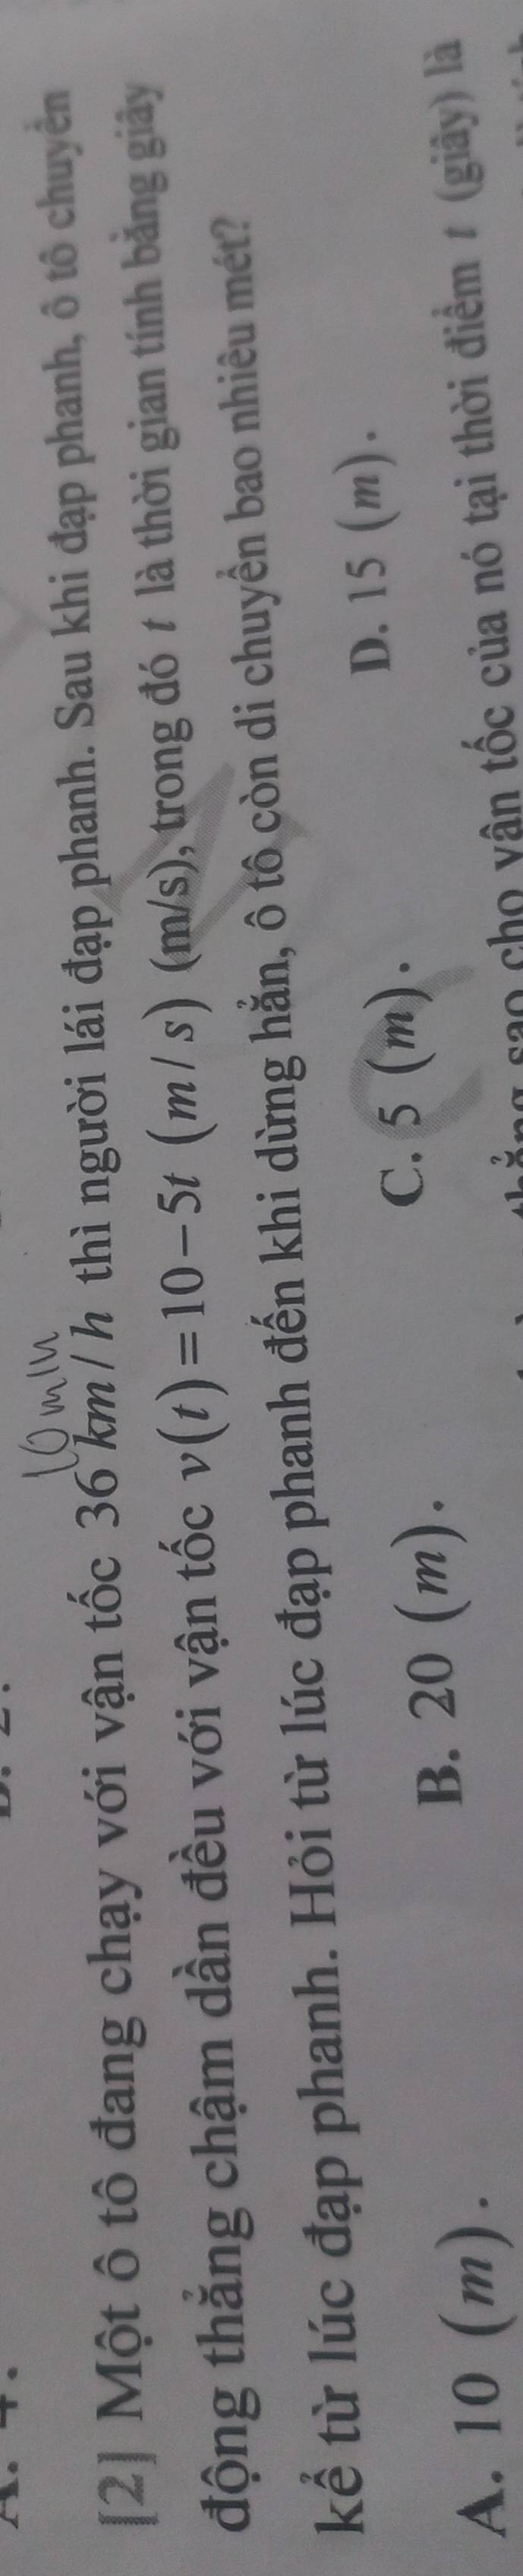 10 m/s
[2] Một ô tô đang chạy với vận tốc 36 km/h thì người lái đạp phanh. Sau khi đạp phanh, ô tô chuyển
động thẳng chậm dần đều với vận tốc v(t)=10−5t (m/s) (m/s), trong đó t là thời gian tính bằng giây
kể từ lúc đạp phanh. Hỏi từ lúc đạp phanh đến khi dừng hẳn, ô tô còn di chuyển bao nhiêu mét?
A. 10 (m). B. 20 (m). C. 5 (m). D. 15 (m).
sao cho vận tốc của nó tại thời điểm t (giây) là